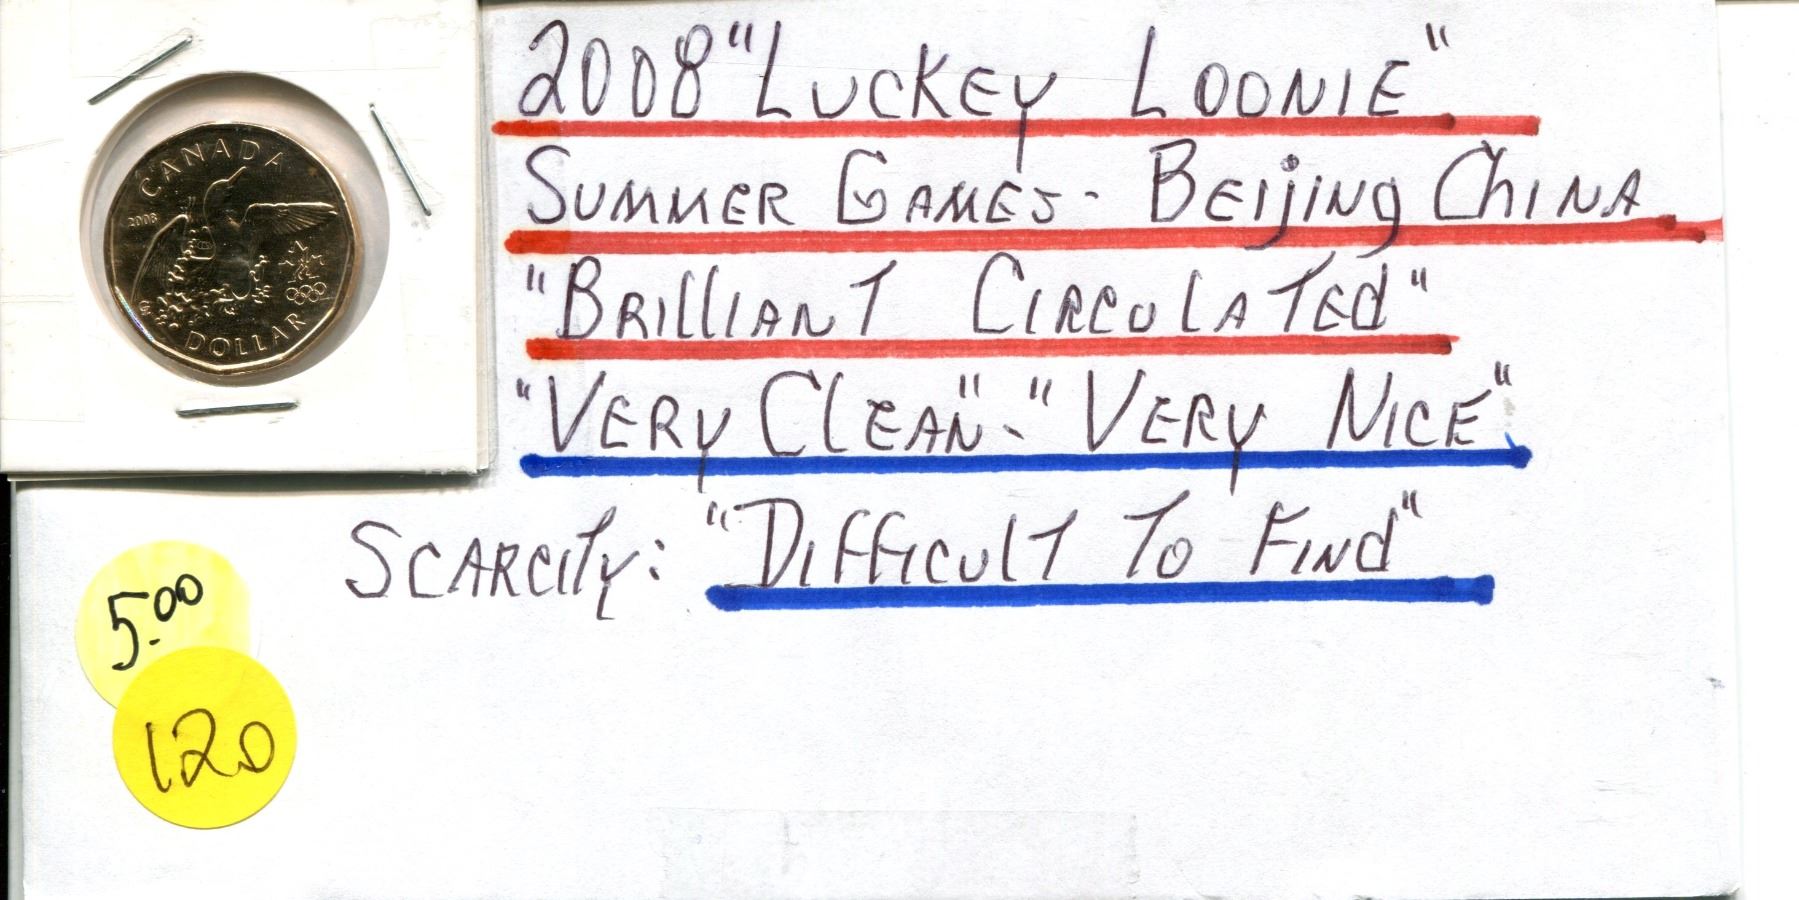 CANADA
2008
DOLLAR
2008 "LUCKEY LOONIE"
SUMMER GAMES - BEIJING CHINA
"BRILLIANT CIRCULATED"
"VERY CLEAN" - "VERY NICE"
SCARCITY: "DIFFICULT TO FIND"
5.00
120